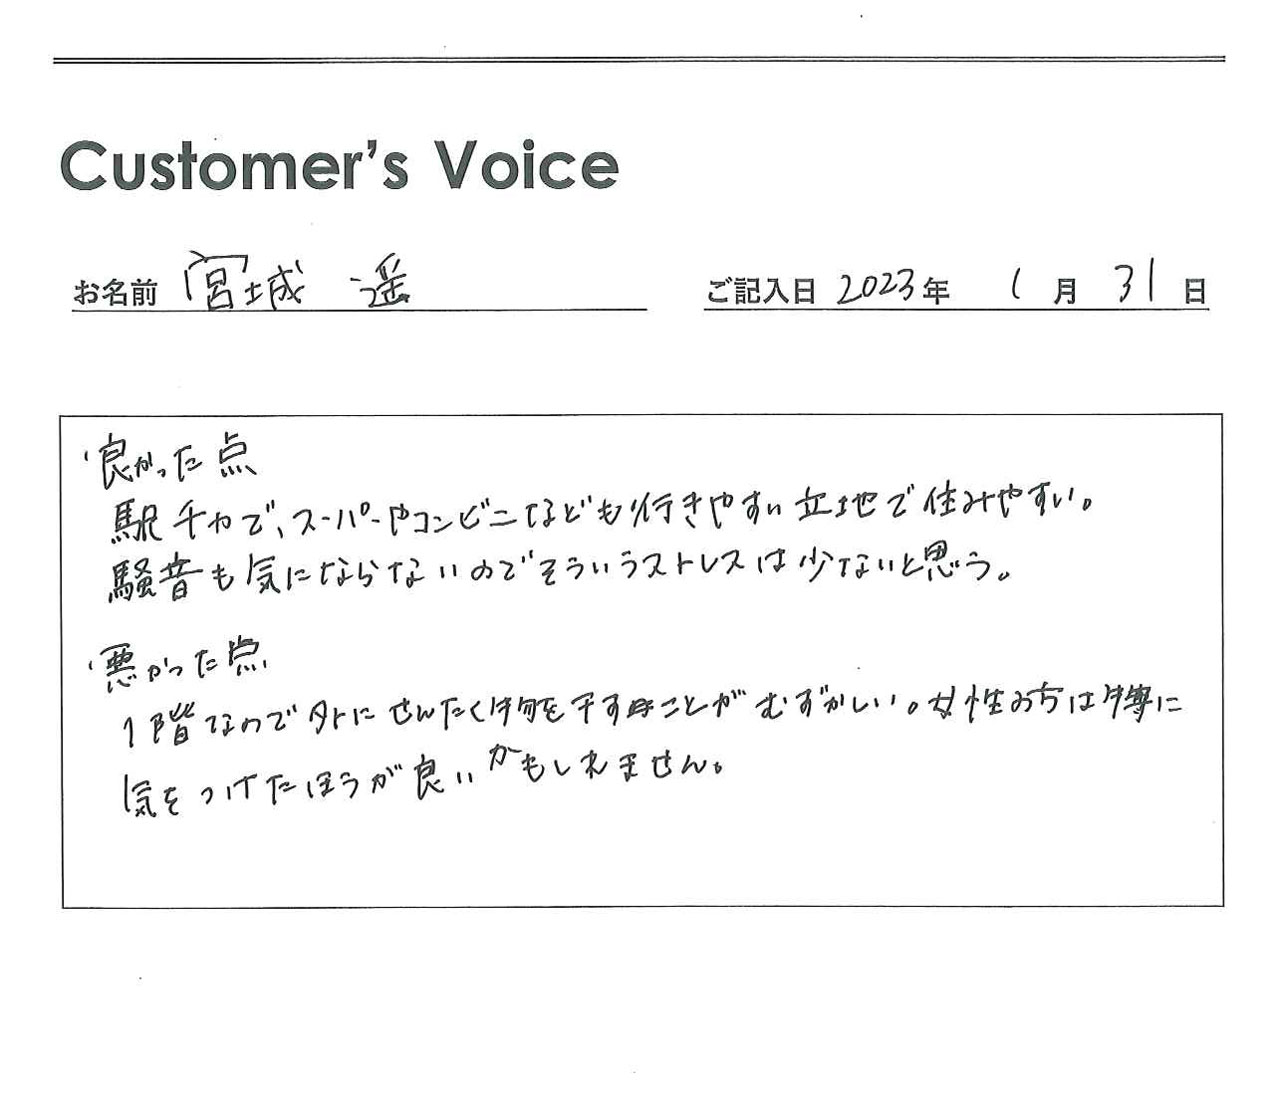 Customer's Voice
お名前 宮城 遥
ご記入日 2023年 1月 31日
・良かった点
駅チカで、スーパーやコンビニなども行きやすい立地で住みやすい。
騒音も気にならないのでそういうストレスは少ないと思う。
・悪かった点
1階なので外にせんたく物を干すことがむずかしい。女性の方は特に
気をつけたほうが良いかもしれません。